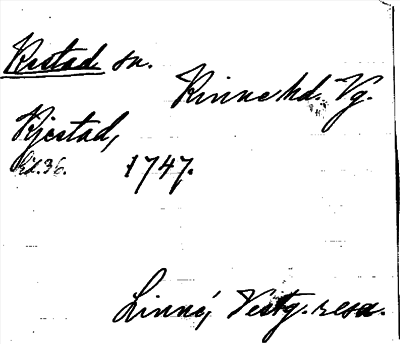 Kestad sn.
Kinne hd. Vg.
Kjestad,
Ed. 36. 1747.
Linné, Vestg. resa.